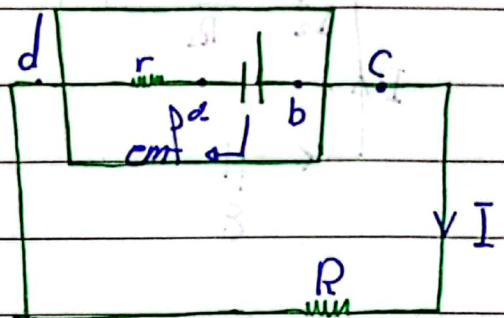 d
r
a
b
c
emf
I
R